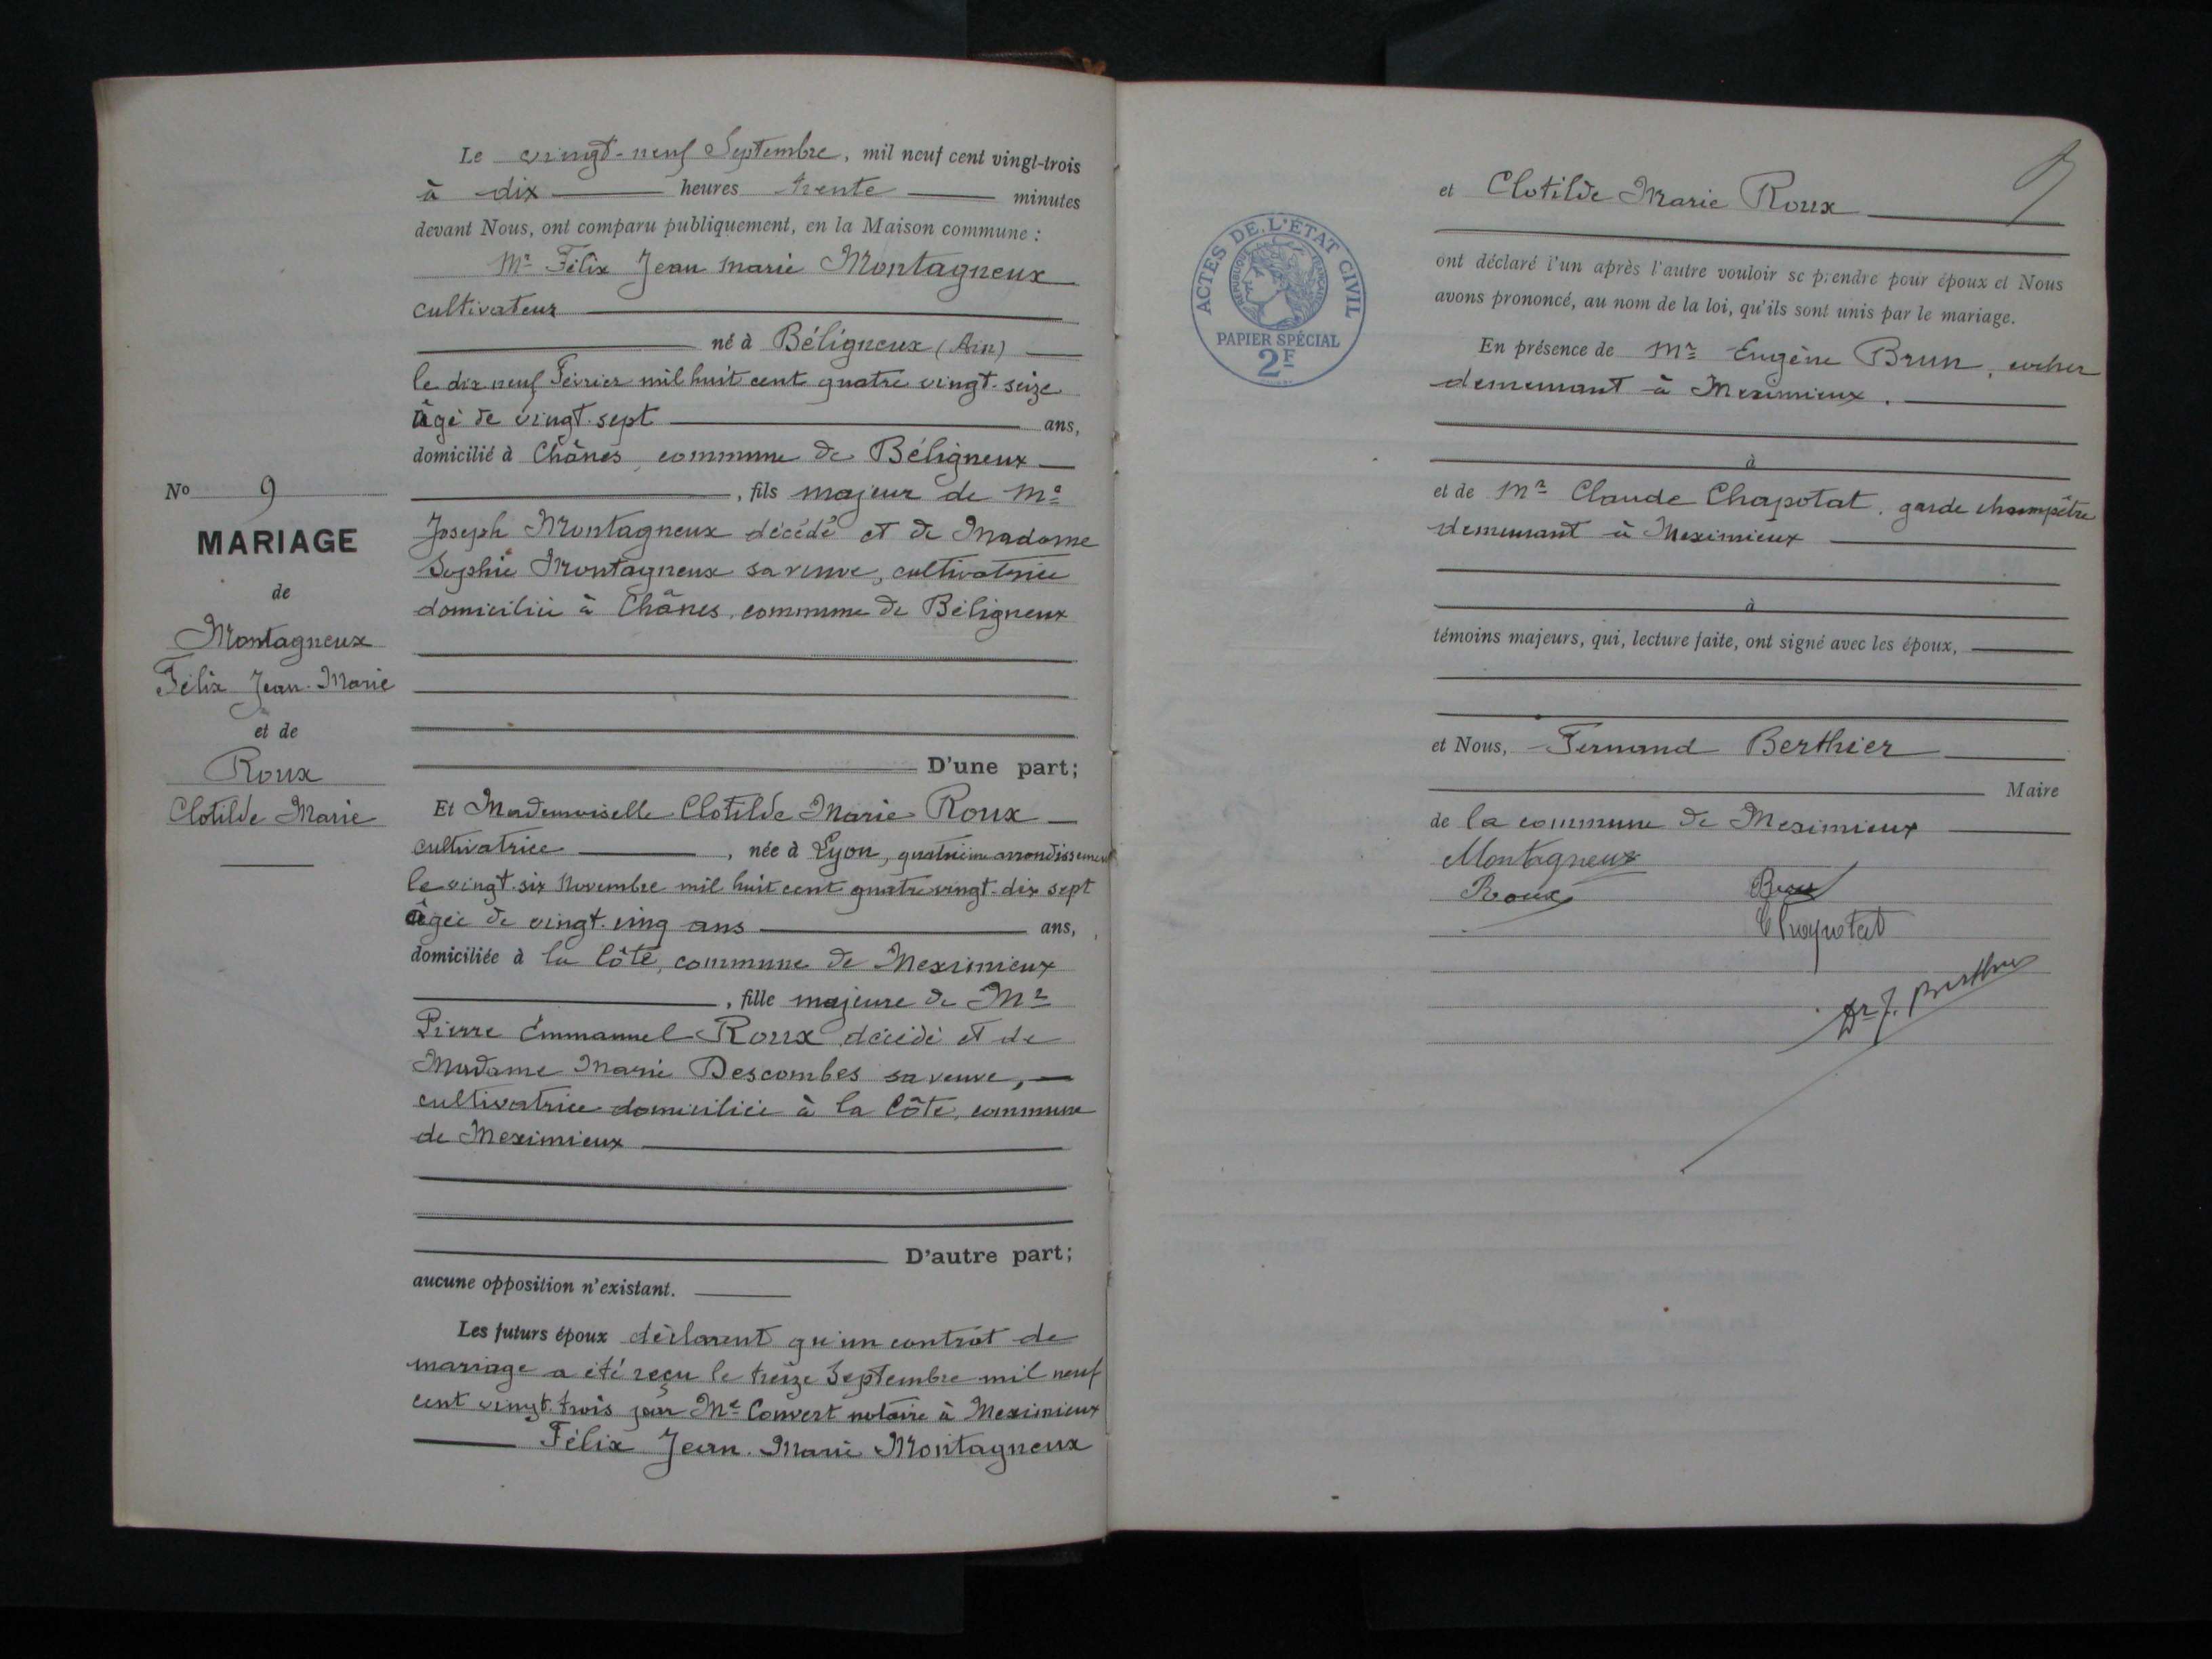 Le vingt-neuf Septembre, mil neuf cent vingt-trois
à dix heures trente minutes
devant Nous, ont comparu publiquement, en la Maison commune :
Mr Félix Jean Marie Montagneux
cultivateur
né à Béligneux (Ain)
le dix neuf Février mil huit cent quatre vingt-seize
âgé de vingt-sept ans,
domicilié à Chânes, commune de Béligneux
, fils majeur de Mr
Joseph Montagneux décédé et de Madame
Sophie Montagneux sa veuve, cultivatrice
domiciliée à Chânes, commune de Béligneux
D'une part;
No 9
MARIAGE
de
Montagneux
Félix Jean-Marie
et de
Roux
Clotilde Marie
Et Mademoiselle Clotilde Marie Roux
cultivatrice , née à Lyon, quatrième arrondissement
le vingt-six Novembre mil huit cent quatre vingt-dix sept
âgée de vingt-cinq ans ans,
domiciliée à la Côte, commune de Meximieux
, fille majeure de Mr
Pierre Emmanuel Roux décédé et de
Madame Marie Descombes sa veuve,
cultivatrice domiciliée à la Côte, commune
de Meximieux
D'autre part;
aucune opposition n'existant.
Les futurs époux déclarent qu'un contrat de
mariage a été reçu le treize Septembre mil neuf
cent vingt-trois par Me Convert notaire à Meximieux
Félix Jean-Marie Montagneux
ACTES DE L'ÉTAT CIVIL
RÉPUBLIQUE FRANÇAISE
PAPIER SPÉCIAL
2F
et Clotilde Marie Roux
ont déclaré l'un après l'autre vouloir se prendre pour époux et Nous
avons prononcé, au nom de la loi, qu'ils sont unis par le mariage.
En présence de Mr Eugène Brun, cocher
demeurant à Meximieux.
à
et de Mr Claude Chapotat, garde champêtre
demeurant à Meximieux
à
témoins majeurs, qui, lecture faite, ont signé avec les époux,
et Nous, Fernand Berthier
Maire
de la commune de Meximieux
Montagneux
Roux Brun
Chapotat
Dr F. Berthier